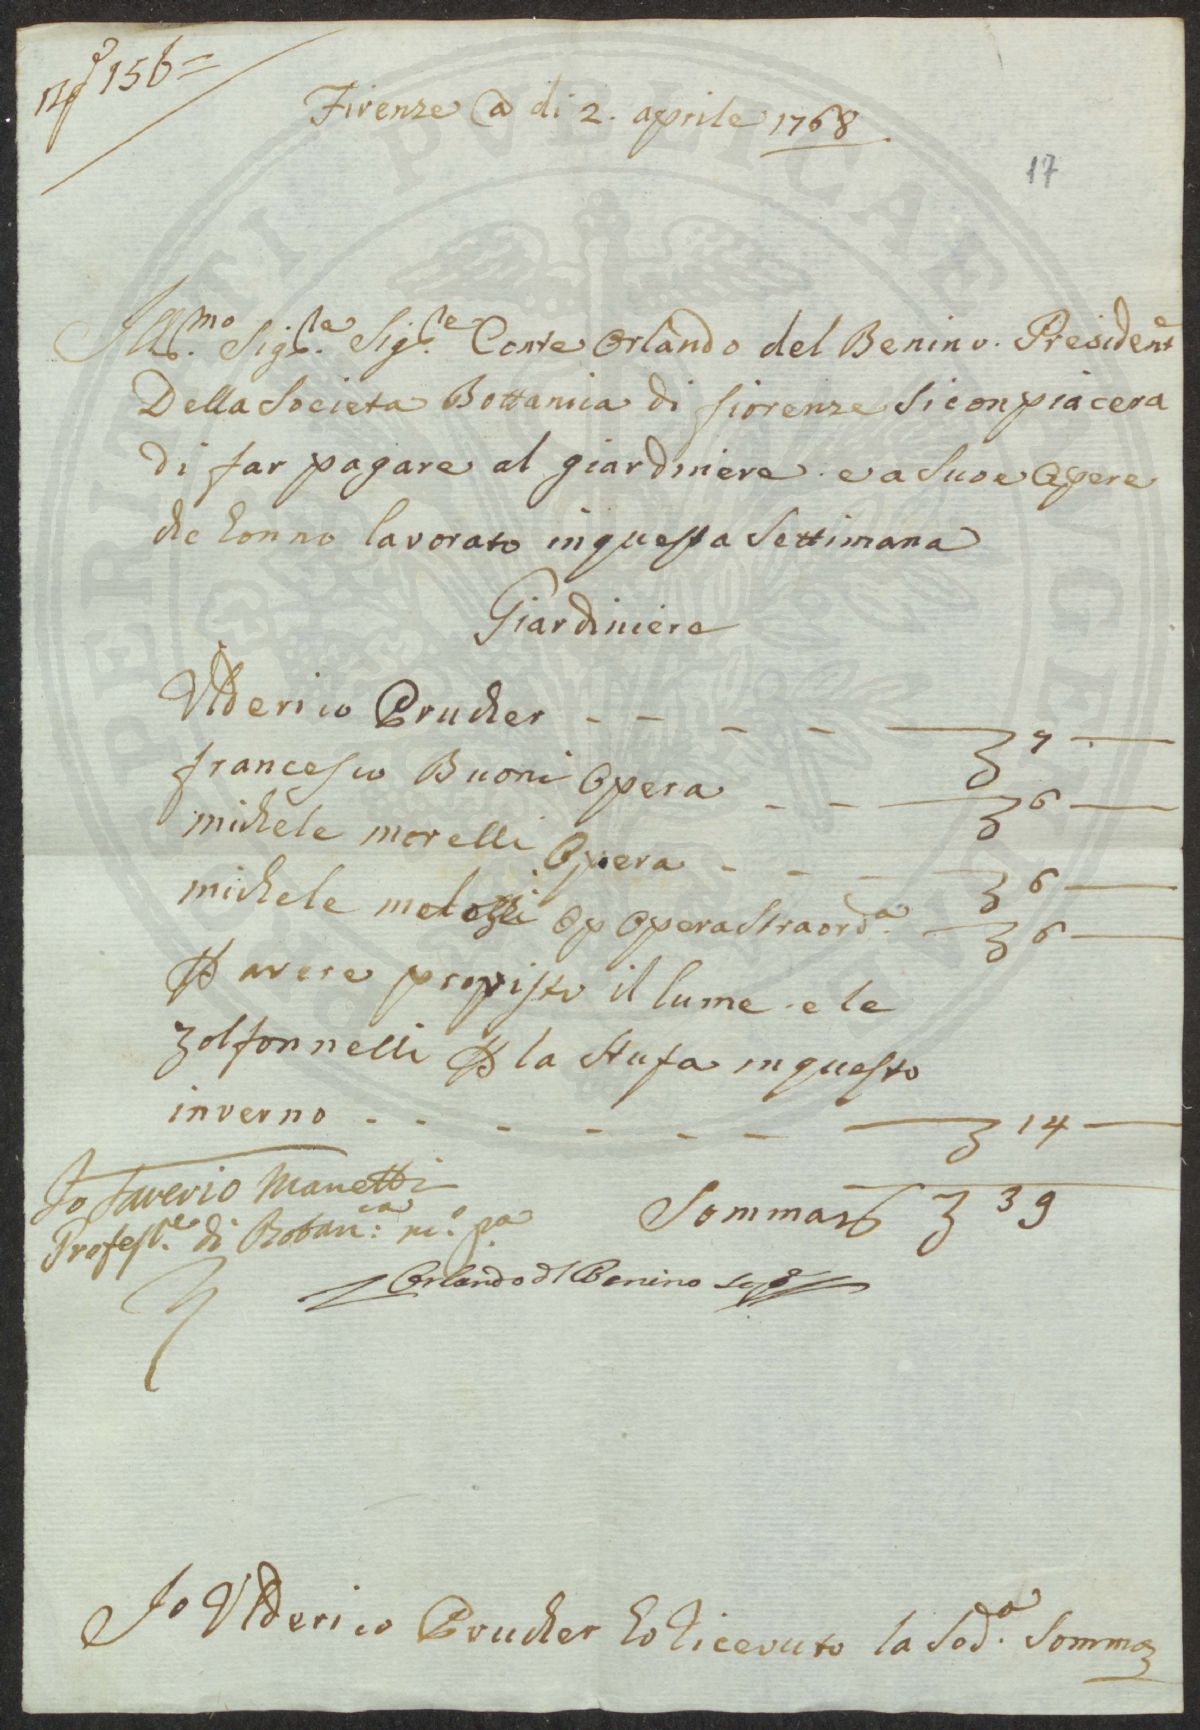 N.º 156=
Firenze a di 2. aprile 1768
17
Ill.mo Sig.re Sig.re Conte Orlando del Benino. Presidente
Della Societa Bottanica di fiorenze si conpiacera
di far pagare al giardiniere e a Sue Opere
che honno lavorato in questa Settimana
Giardiniere
Ulderico Prucher - - - - 7 —
francesco Buoni Opera - - 6 —
michele morelli Opera - - - 6 —
michele melozzi Op Opera Straord.a 6 —
P avere provisto il lume e le
zolfonnelli P la Stufa in questo
inverno - - - - - - 14 —
Io Saverio Manetti
Profess.e di Botan.ca m.o p.a
Somma 39
Orlando del Benino
Io Ulderico Prucher ho riceuuto la Sod.a Somma